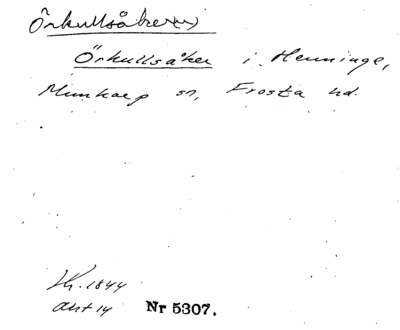 Örkullsåker(n)
Örkullsåker i Henninge,
Munkarp sn, Frosta hd.
Lh. 1844
akt 14 Nr 5307.